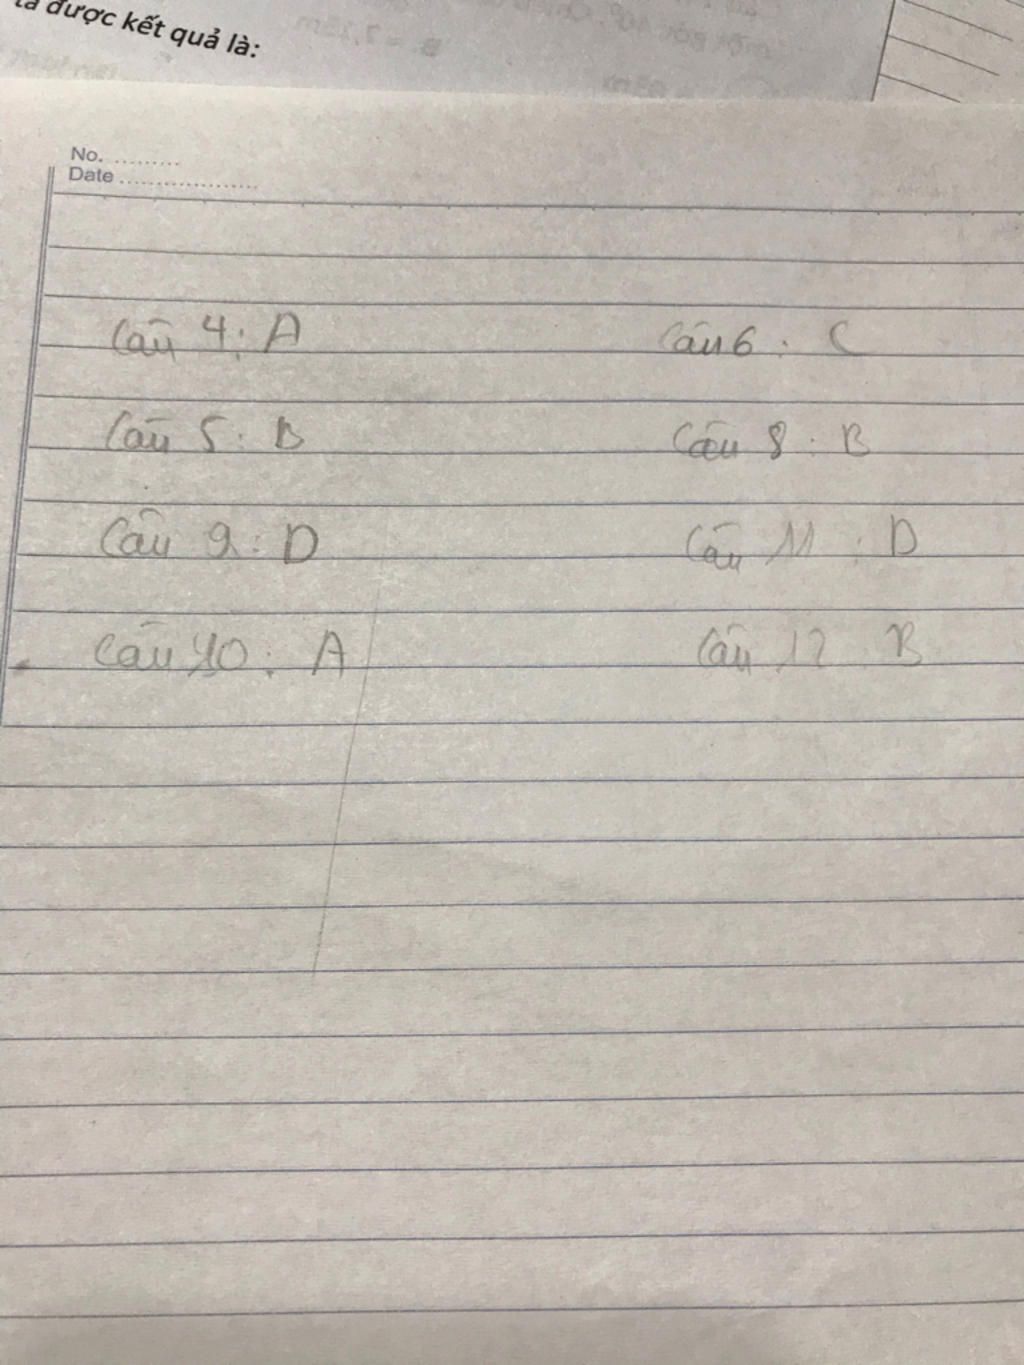 ta được kết quả là:
No. ..........
Date ....................
Câu 4: A
Câu 6: C
Câu 5: B
Câu 8: B
Câu 9: D
Câu 11: D
Câu 10: A
Câu 12 B